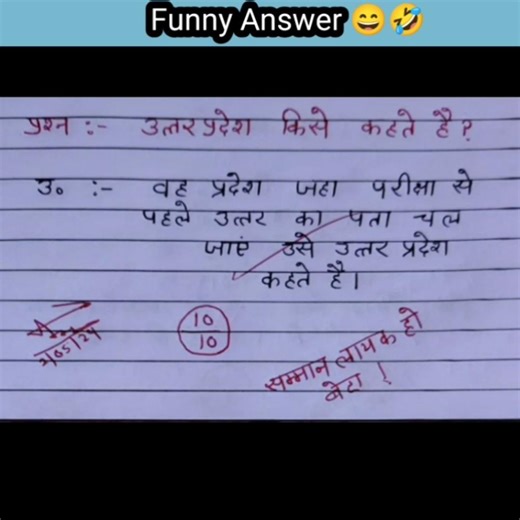 Funny Answer 😄🤣
प्रश्न :- उत्तर प्रदेश किसे कहते है?
उ० :- वह प्रदेश जहा परीक्षा से
पहले उत्तर का पता चल
जाएं उसे उत्तर प्रदेश
कहते है।
10
10
सम्मान लायक हो
बेटा !